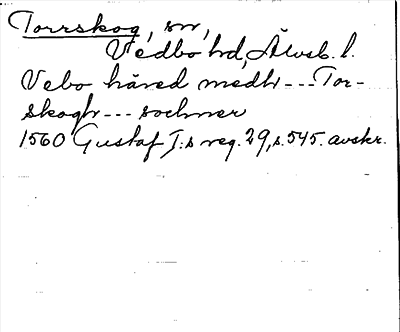 Torrskog, sn,
Vedbo hd, Älvsb. l.
Vebo häred medh --- Tor-
skogh --- sochner
1560 Gustaf I:s reg. 29, s. 545. avskr.